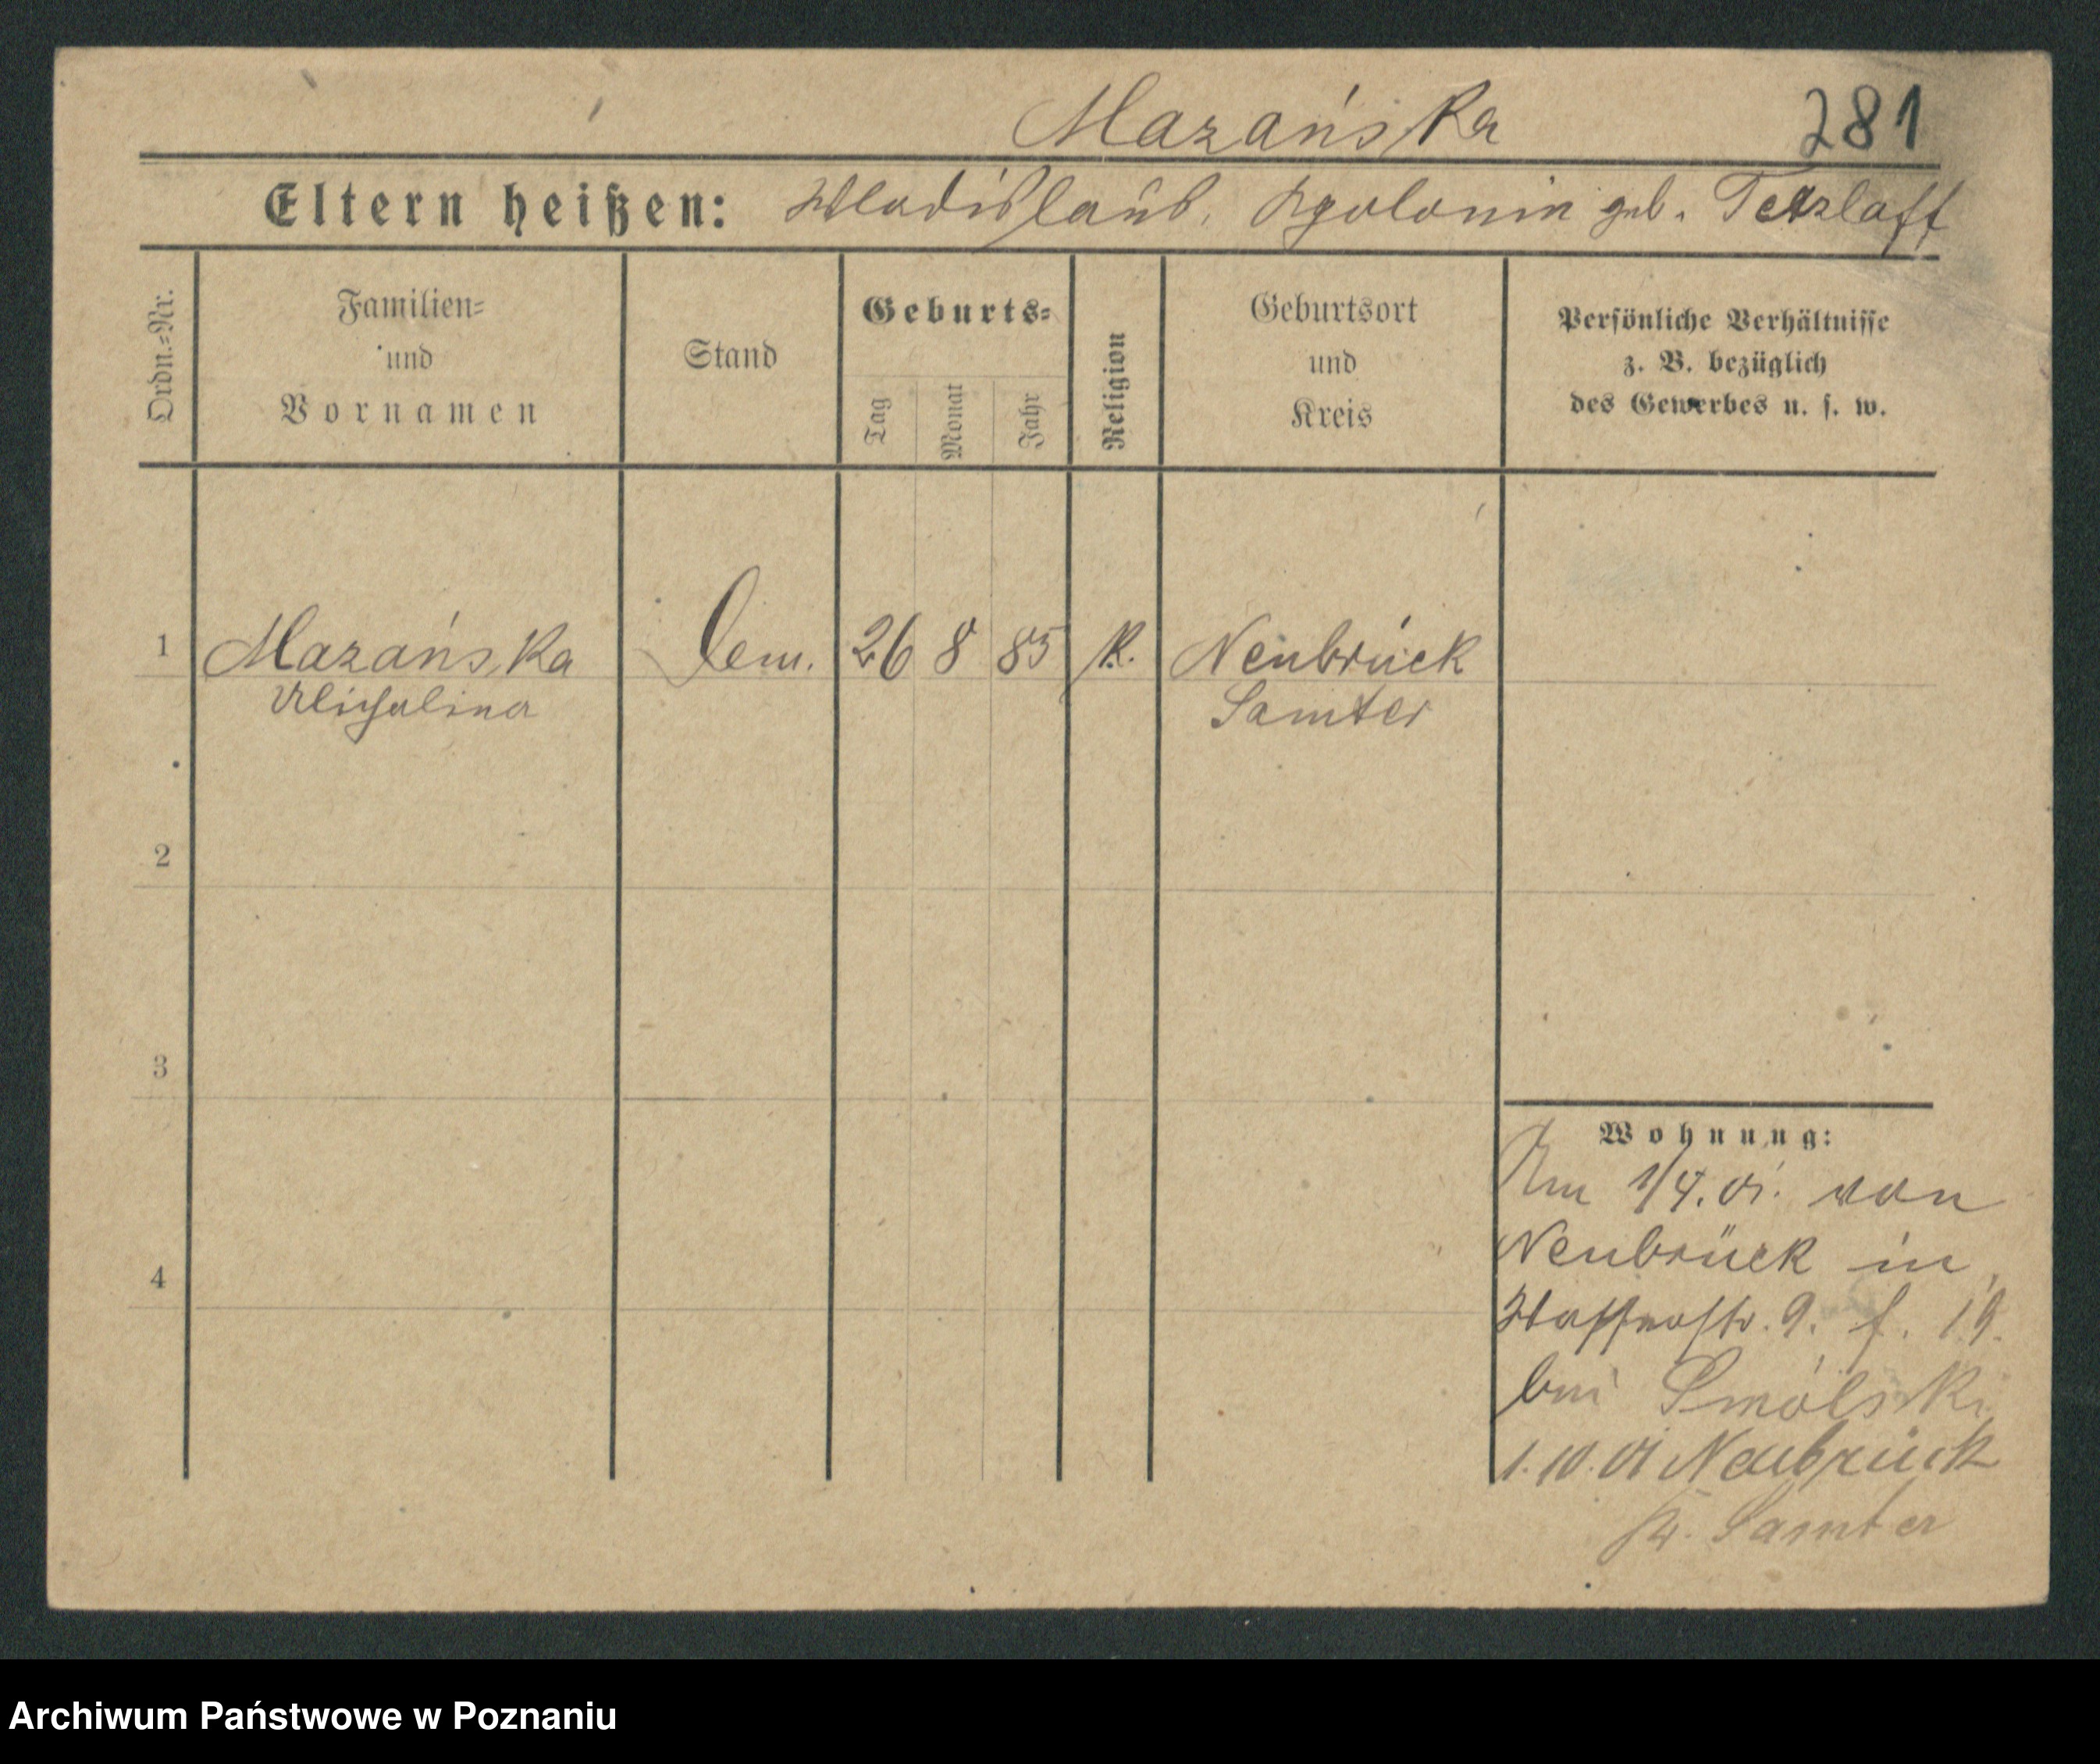 Mazańska 281
Eltern heißen: Wladislaus, Apolonia geb. Tetzlaff
Ordn.-Nr.
Familien-
und
Vornamen
Stand
Geburts-
Tag
Monat
Jahr
Religion
Geburtsort
und
Kreis
Persönliche Verhältnisse
z. B. bezüglich
des Gewerbes u. s. w.
1 Mazańska 26 8 85 K. Neubrück
Michalina Samter
2
3
4
Wohnung:
Am 1/4. 01. von
Neubrück in
9. 19.
bei Smólski
1.10.01 Neubrück
Kr. Samter
Archiwum Państwowe w Poznaniu